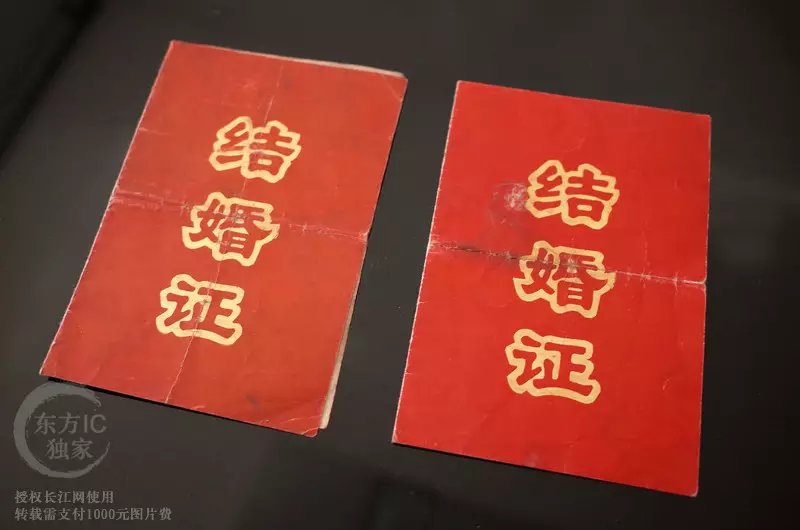 结
婚
证
结
婚
证
东方IC
独家
授权长江网使用
转载需支付1000元图片费